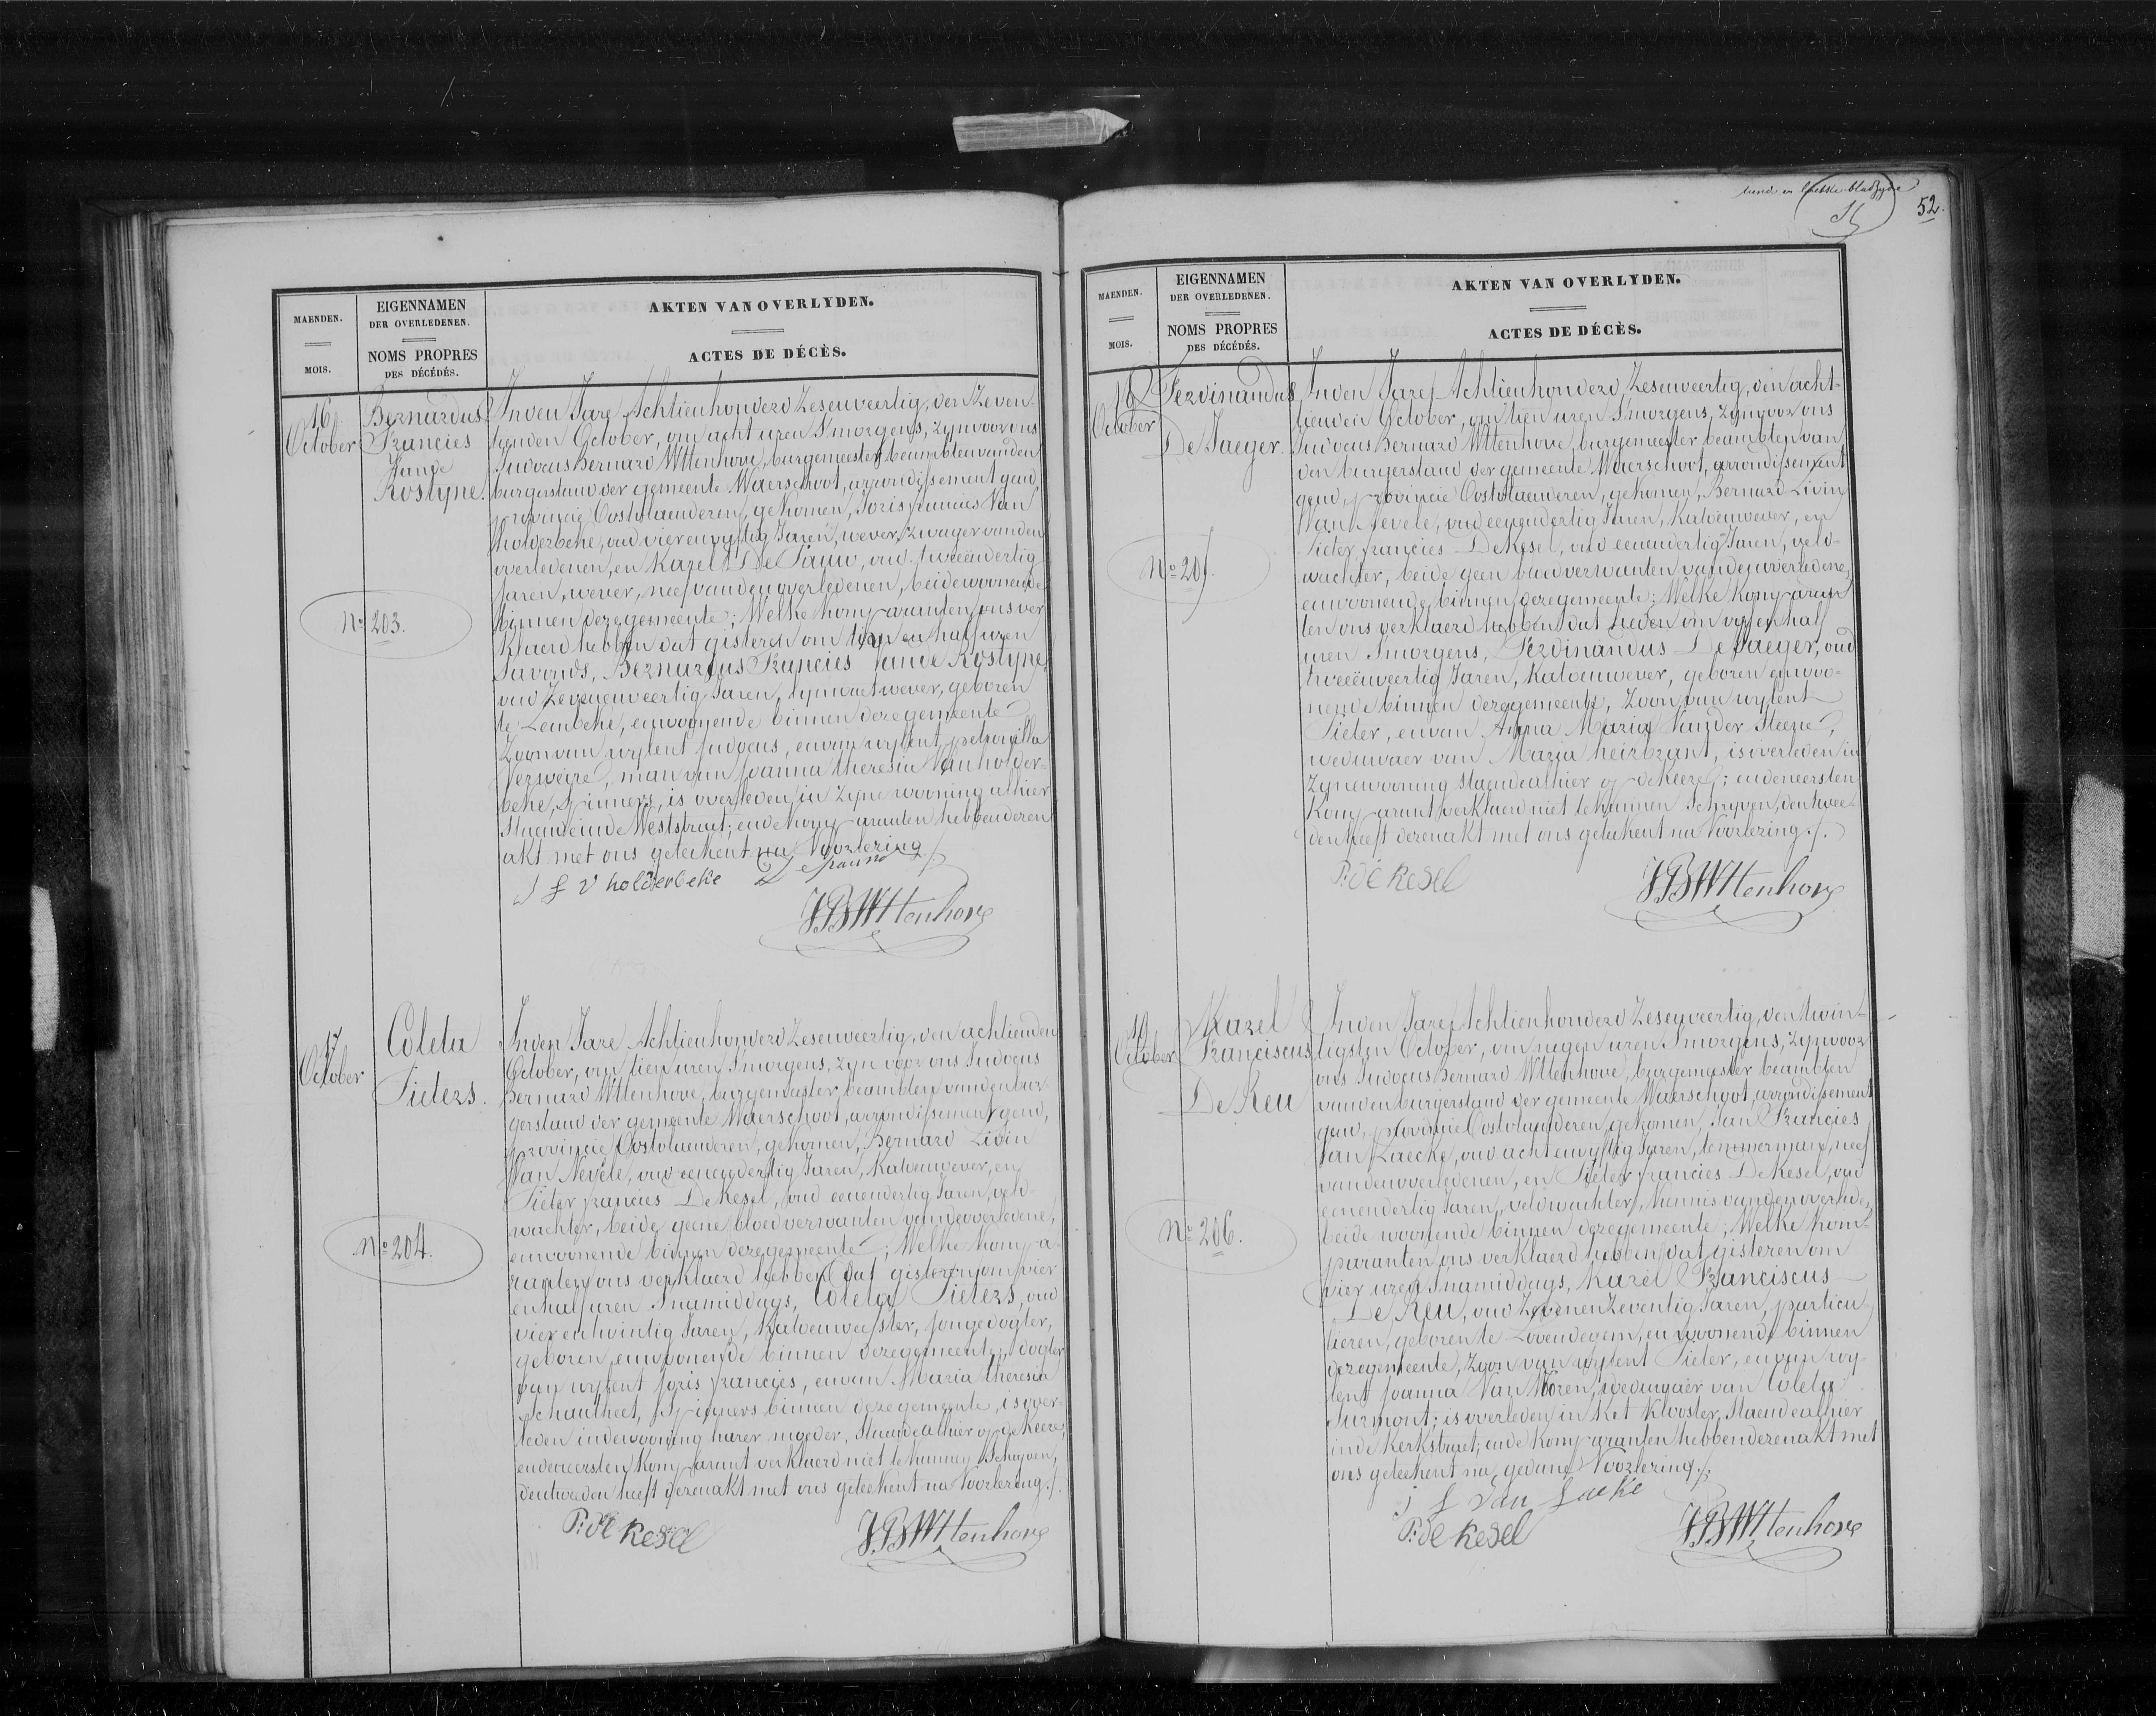 52.
MAENDEN.
MOIS.
EIGENNAMEN
DER OVERLEDENEN.
NOMS PROPRES
DES DÉCÉDÉS.
AKTEN VAN OVERLYDEN.
ACTES DE DÉCÈS.
16
October
Bernardus
Francies
Vande
Rostyne.
No 203.
In den Jare Achtienhonderd Zesenveertig, den Zeven-
tienden October, om acht uren S'morgens, zyn voor ons
Judocus Bernard Wttenhove, burgemeester beambten van den
burgerstand der gemeente Waerschoot, arrondissement gend,
provincie Oostvlaenderen, gekomen, Joris francies Van
holderbeke, oud vierenvyftig Jaren, wever, Zwager van den
overledenen, en Karel De Pauw, oud tweeëndertig
Jaren, wever, neef van den overledenen, beide woonende
binnen deze gemeente; Welke komparanten ons ver
klaerd hebben dat gisteren om tien en half uren
Savonds, Bernardus Francies Vande Rostyne,
oud Zevenenveertig Jaren, lynwaetwever, geboren
te Lembeke, en woonende binnen deze gemeente
Zoon van wylent Judocus, en van wylent petronilla
Verwegre, man van Joanna theresia Van holder-
beke, Spinnere, is overleden in zyne wooning alhier
Staende inde Weststraet; en de komparanten hebben dezen
akt met ons geteekent na Voorlezing ./.
J f v holderbeke Depauw
JB Wttenhove
17
October
Coleta
Pieters.
No 204.
In den Jare Achtienhonderd Zesenveertig, den achtienden
October, om tien uren S'morgens, zyn voor ons Judocus
Bernard Wttenhove, burgemeester beambten van den bur-
gerstand der gemeente Waerschoot, arrondissement gend,
provincie Oostvlaenderen, gekomen, Bernard Livin
Van Nevele, oud eenendertig Jaren, Katoenwever, en
Pieter francies De Kesel, oud eenendertig Jaren, veld
wachter, beide geene bloedverwanten van de overledene,
en woonende binnen deze gemeente; Welke kompa-
ranten ons verklaerd hebben dat gisteren om vier
en half uren Snamiddags, Coleta Pieters, oud
vierentwintig Jaren, Katoenweefster, Jongedogter,
geboren en woonende binnen deze gemeente, dogter
van wylent Joris francies, en van Maria theresia
Schautheet, Spinners binnen deze gemeente, is over-
leden in de wooning harer moeder, Staende alhier op de Keere,
en den eersten komparant verklaerd niet te kunnen Schryven,
den tweeden heeft dezen akt met ons geteekent na Voorlezing ./.
P: de Kesel
JB Wttenhove
MAENDEN.
MOIS.
EIGENNAMEN
DER OVERLEDENEN.
NOMS PROPRES
DES DÉCÉDÉS.
AKTEN VAN OVERLYDEN.
ACTES DE DÉCÈS.
18
October
Ferdinandus
De Jaeger.
No 205.
In den Jare Achtienhonderd Zesenveertig, den acht-
tienden October, om tien uren S'morgens, zyn voor ons
Judocus Bernard Wttenhove, burgemeester beambten van
den burgerstand der gemeente Waerschoot, arrondissement
gend, provincie Oostvlaenderen, gekomen, Bernard Livin
Van Nevele, oud eenendertig Jaren, Katoenwever, en
Pieter francies De Kesel, oud eenendertig Jaren, veld-
wachter, beide geen bloedverwanten van den overledene,
en woonende binnen deze gemeente; Welke Komparan
ten ons verklaerd hebben dat heden om vyf en half
uren Smorgens, Ferdinandus De Jaeger, oud
tweeënveertig Jaren, Katoenwever, geboren en woo-
nende binnen deze gemeente, Zoon van wylent
Pieter, en van Anna Maria Vander Steene,
weduwaer van Maria heirbrant, is overleden in
zyne wooning staende alhier op de keere; en den eersten
Komparant verklaerd niet te kunnen Schryven, den twee-
den heeft dezen akt met ons geteekent na Voorlezing ./.
P: de Kesel
JB Wttenhove
19
October
Karel
Franciscus
De Reu
No 206.
In den Jare Achtienhonderd Zesenveertig, den Twin-
tigsten October, om negen uren Smorgens, zyn voor
ons Judocus Bernard Wttenhove, burgemeester beambten
van den burgerstand der gemeente Waerschoot, arrondissement
gend, provincie Oostvlaenderen, gekomen, Jan Francies
Van Laecke, oud achtenvyftig Jaren, temmerman, neef
van den overledenen, en Pieter francies De Kesel, oud
eenendertig Jaren, veldwachter, Kennis van den overleden,
beide woonende binnen deze gemeente; Welke kom-
paranten ons verklaerd hebben dat gisteren om
vier uren Snamiddags, Karel Franciscus
De Reu, oud Zevenen Zeventig Jaren, particu-
lieren, geboren te Lovendegem, en woonende binnen
deze gemeente, Zoon van wylent Pieter, en van wy-
lent Joanna Van Vooren, weduwaer van Coleta
Surmont; is overleden in het Klooster, Staende alhier
in de Kerkstraet; en de komparanten hebben dezen akt met
ons geteekent na gedane Voorlezing ./.
j f Van Laeke
P: de Kesel
JB Wttenhove